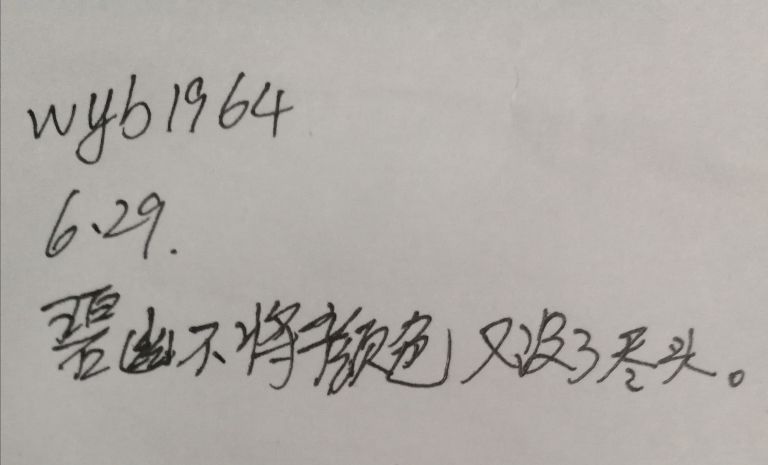 wyb1964
6.29.
碧幽不将颜色 又没了尽头。